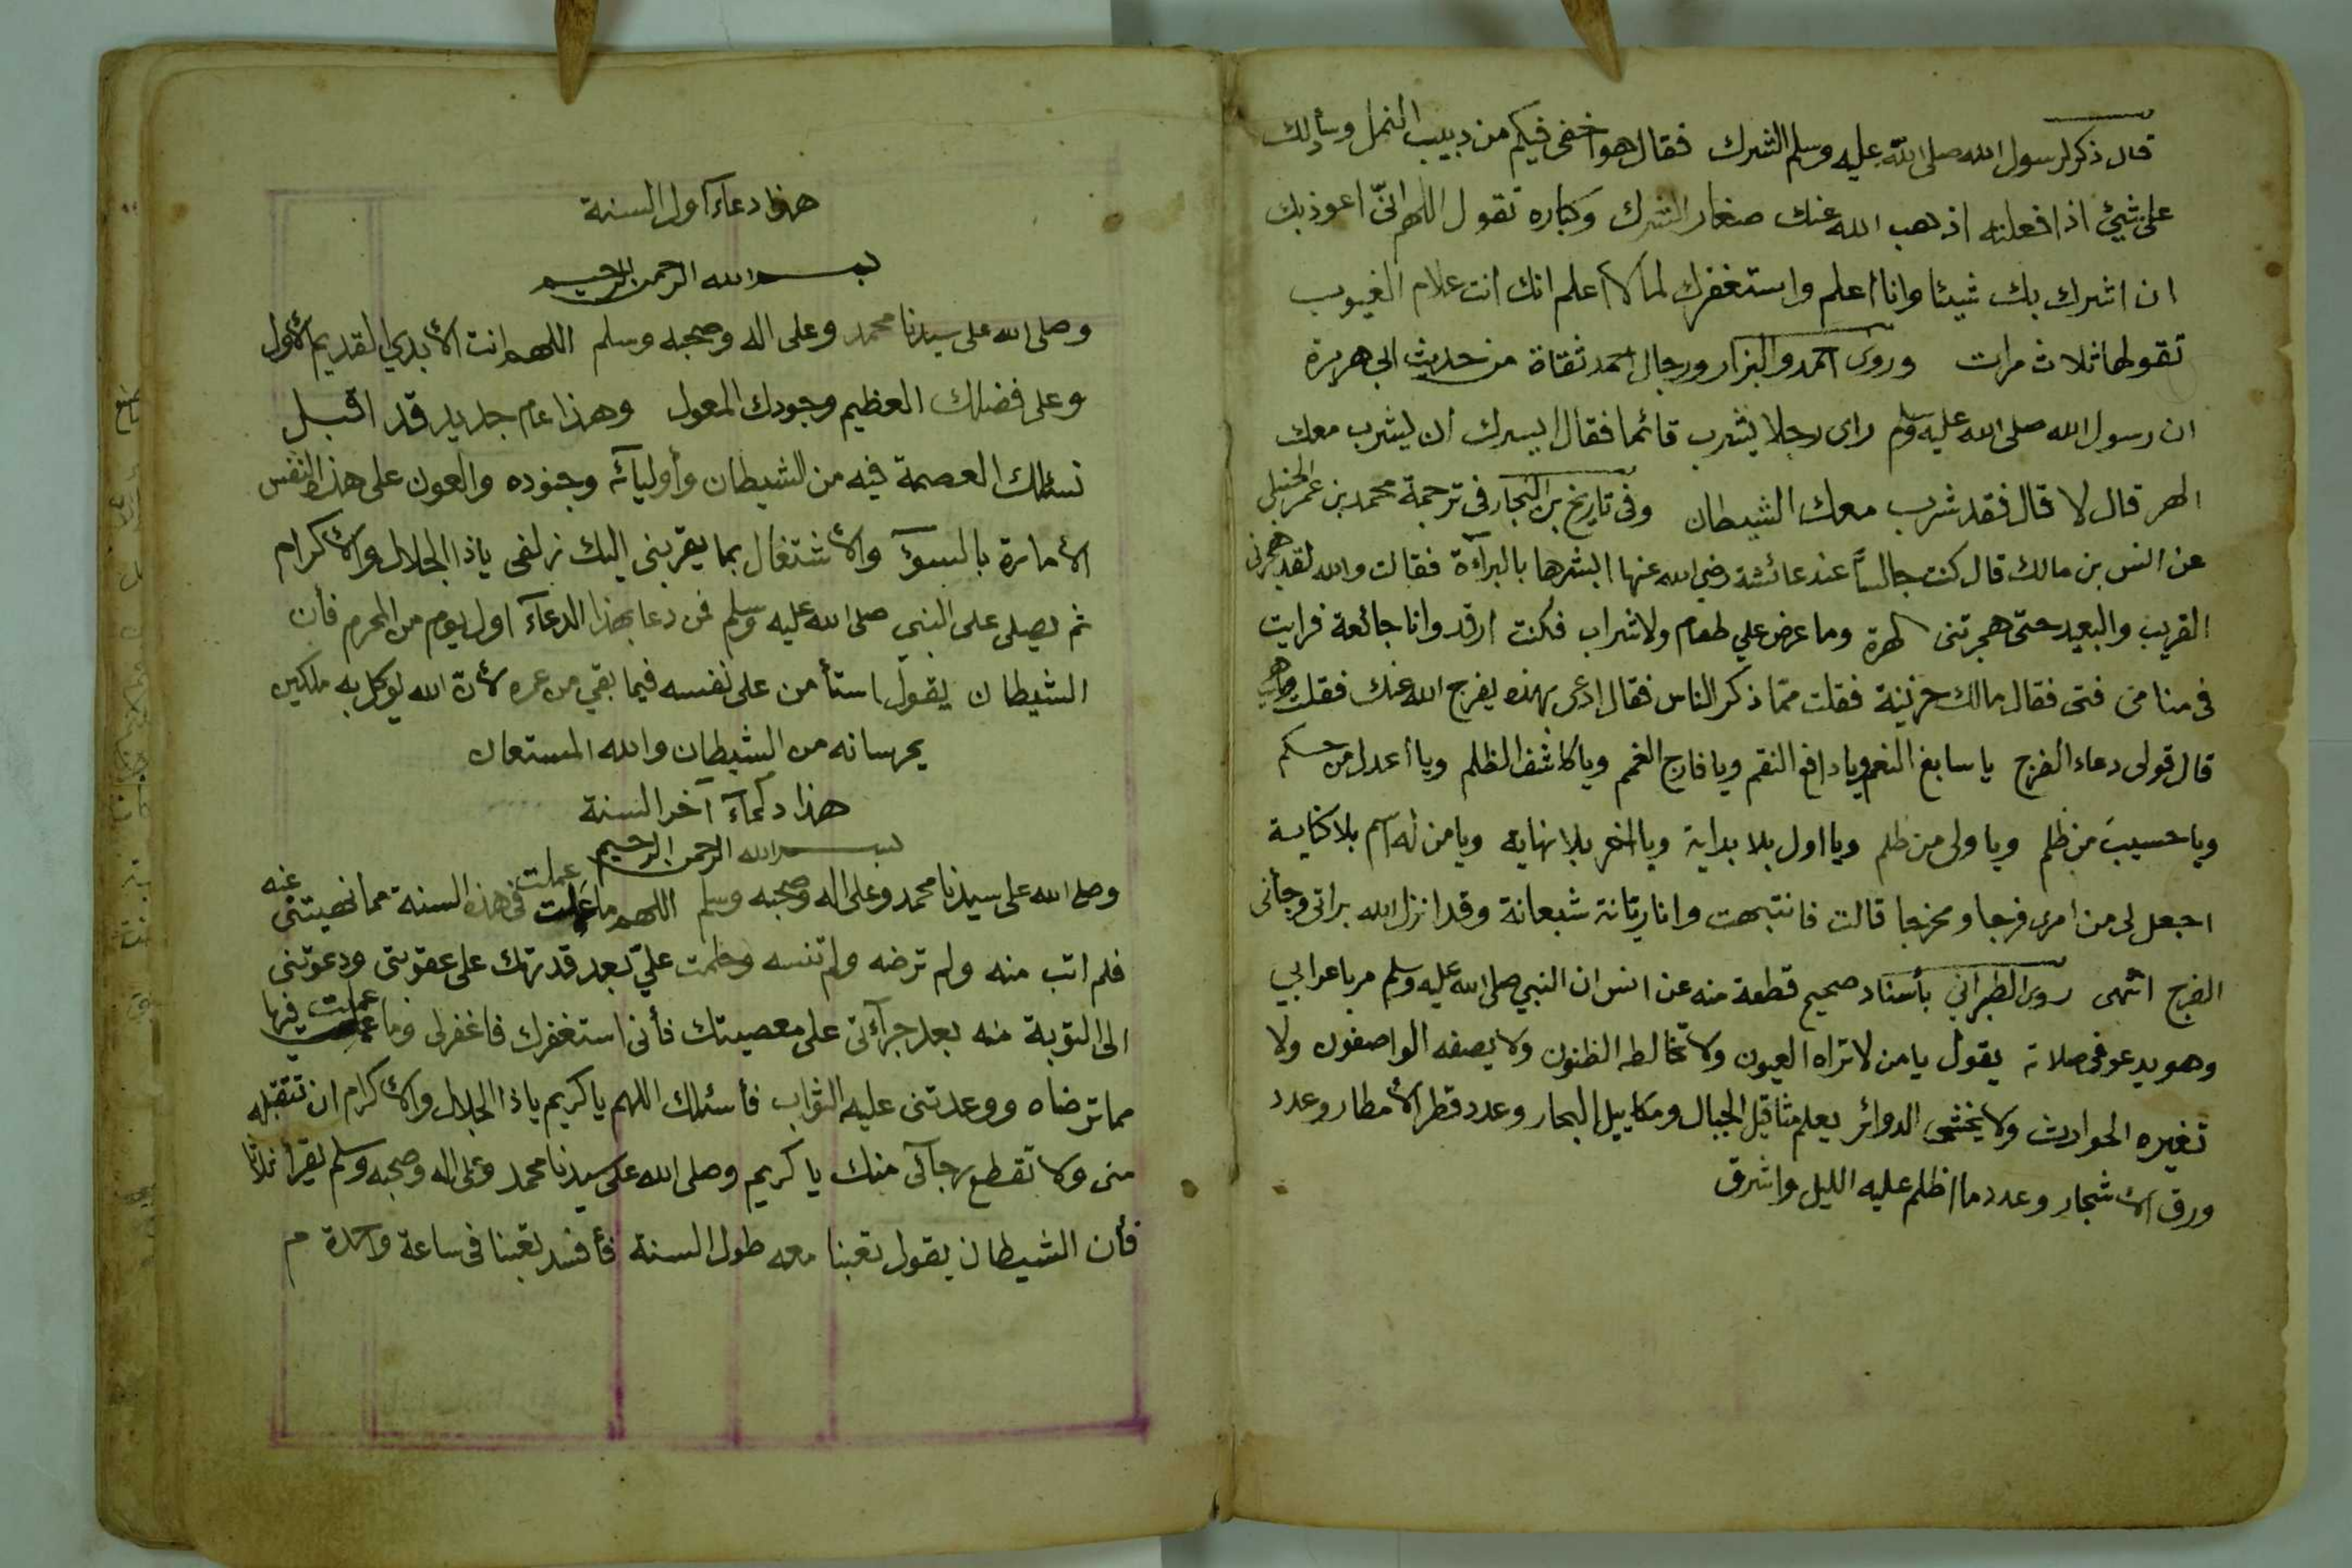 قال ذكر لرسول الله صلى الله عليه وسلم الشرك فقال هو اخفى فيكم من دبيب النمل وسأدلك
على شيئ اذا فعلته اذهب الله عنك صغار الشرك وكباره تقول اللهم انىّ اعوذ بك
ان اشرك بك شيئا وانا اعلم واستغفرك لما لا اعلم انك انت علام الغيوب
تقولها ثلاث مرات وروى احمد والبزار ورجال احمد ثقاة من حديث ابى هريرة
ان رسول الله صلى الله عليه وسلم راى رجلا يشرب قائما فقال ايسرك أن يشرب معك
الهر قال لا قال فقد شرب معك الشيطان وفى تاريخ بن النجار فى ترجمة محمد بن عمر الحنبلى
عن انس بن مالك قال كنت جالساً عند عائشة رضى الله عنها ابشرها بالبرآءة فقالت والله لقد هجرنى
القريب والبعيد حتى هجرتنى الهرة وما عرض علي طعام ولا شراب فكنت ارقد وانا جائعة فرايت
فى منامى فتى فقال مالك حزينة فقلت ممّا ذكر الناس فقال ادعى بهذه يفرج الله عنك فقلت وماهى
قال قولى دعاء الفرج يا سابغ النعم ويا دافع النقم ويا فارج الغمم ويا كاشف الظلم ويا أعدل من حكم
ويا حسيبَ من ظلم ويا ولى من ظلم ويا اول بلا بداية ويا اخر بلا نهاية ويا من له اسم بلا كناية
اجعل لى من امرى فرجا ومخرجا قالت فانتبهت وانا ريانة شبعانة وقد انزل الله براتى وجأنى
الفرج انتهى روى الطبراني بأسناد صحيح قطعة منه عن انس ان النبي صلى الله عليه وسلم مر باعرابي
وهو يدعو فى صلاته يقول يا من لا تراه العيون ولا تخالطه الظنون ولا يصفه الواصفون ولا
تغيره الحوادث ولا يخشى الدوائر يعلم مثاقيل الجبال ومكاييل البحار وعدد قطر الأمطار وعدد
ورق الأشجار وعدد ما اظلم عليه الليل واشرق
هذا دعآء آول السنة
بسم الله الرحمن الرحيم
وصلى الله على سيدنا محمد وعلى اله وصحبه وسلم اللهم انت الأبدي القديم الأول
وعلى فضلك العظيم وجودك المعول وهذا عام جديد قد اقبل
نسئلك العصمة فيه من الشيطان وأوليآئه وجنوده والعون على هذه النفس
الأمارة بالسوٓء والأشتغال بما يقربنى اليك زلفى ياذا الجلال والأكرام
ثم يصلى على النبي صلى الله عليه وسلم فمن دعا بهذا الدعآء اول يوم من المحرم فأن
الشيطان يقول استأمن على نفسه فيما بقي من عمره لأنّ الله يوكل به ملكين
يحرسانه من الشيطان والله المستعان
هذا دعآء آخر السنة
بسم الله الرحمن الرحيم
وصلى الله على سيدنا محمد وعلى اله وصحبه وسلم اللهم ما عملت عملت فى هذه السنة مما نهيتنى عنه
فلم اتب منه ولم ترضه ولم تنسه وحلمت عليّ بعد قدرتك على عقوبتى ودعوتنى
الى التوبة منه بعد جرآءتى على معصيتك فأنى استغفرك فاغفرلى وما عملت فيها
مما ترضاه ووعدتنى عليه الثواب فأسئلك اللهم يا كريم ياذا الجلال والأكرام ان تتقبله
منى ولا تقطع رجآئى منك يا كريم وصلى الله على سيدنا محمد وعلى اله وصحبه وسلم يقرأ ثلاثا
فأن الشيطان يقول تعبنا معه طول السنة فأفسد تعبنا فى ساعة واحدة م